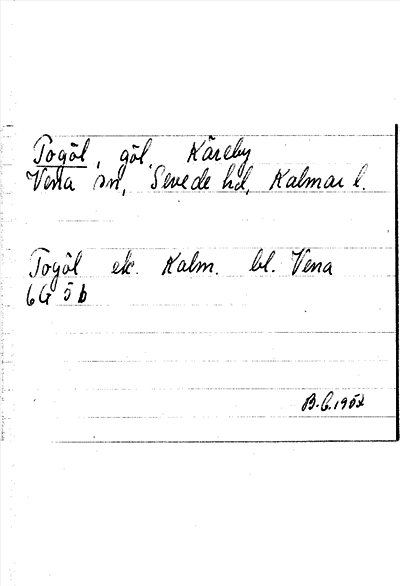 Togöl, göl, Käreby
Vena sn, Sevede hd, Kalmar l.
Togöl ek. Kalm. bl. Vena
6G 5b
B.G. 1954